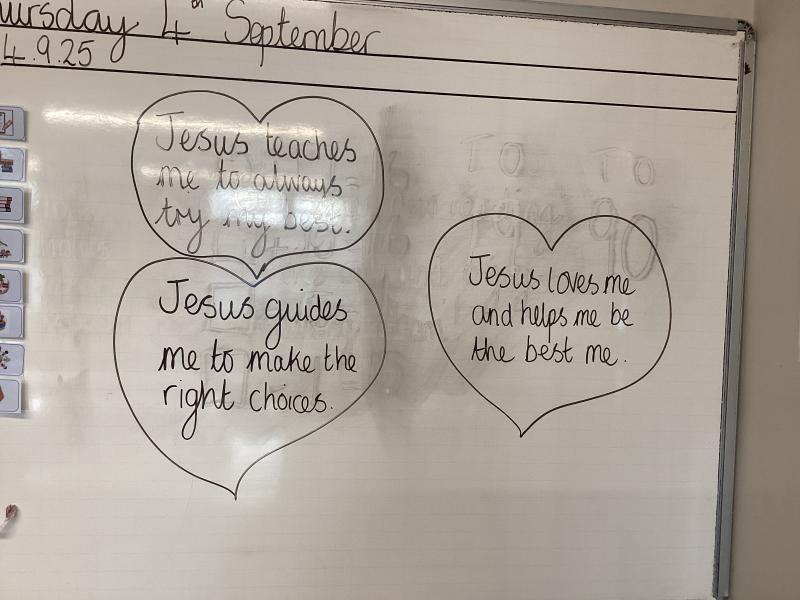 ursday 4th September
4.9.25
Jesus teaches
me to always
try my best.
Jesus guides
me to make the
right choices.
Jesus loves me
and helps me be
the best me.
TO TO
90